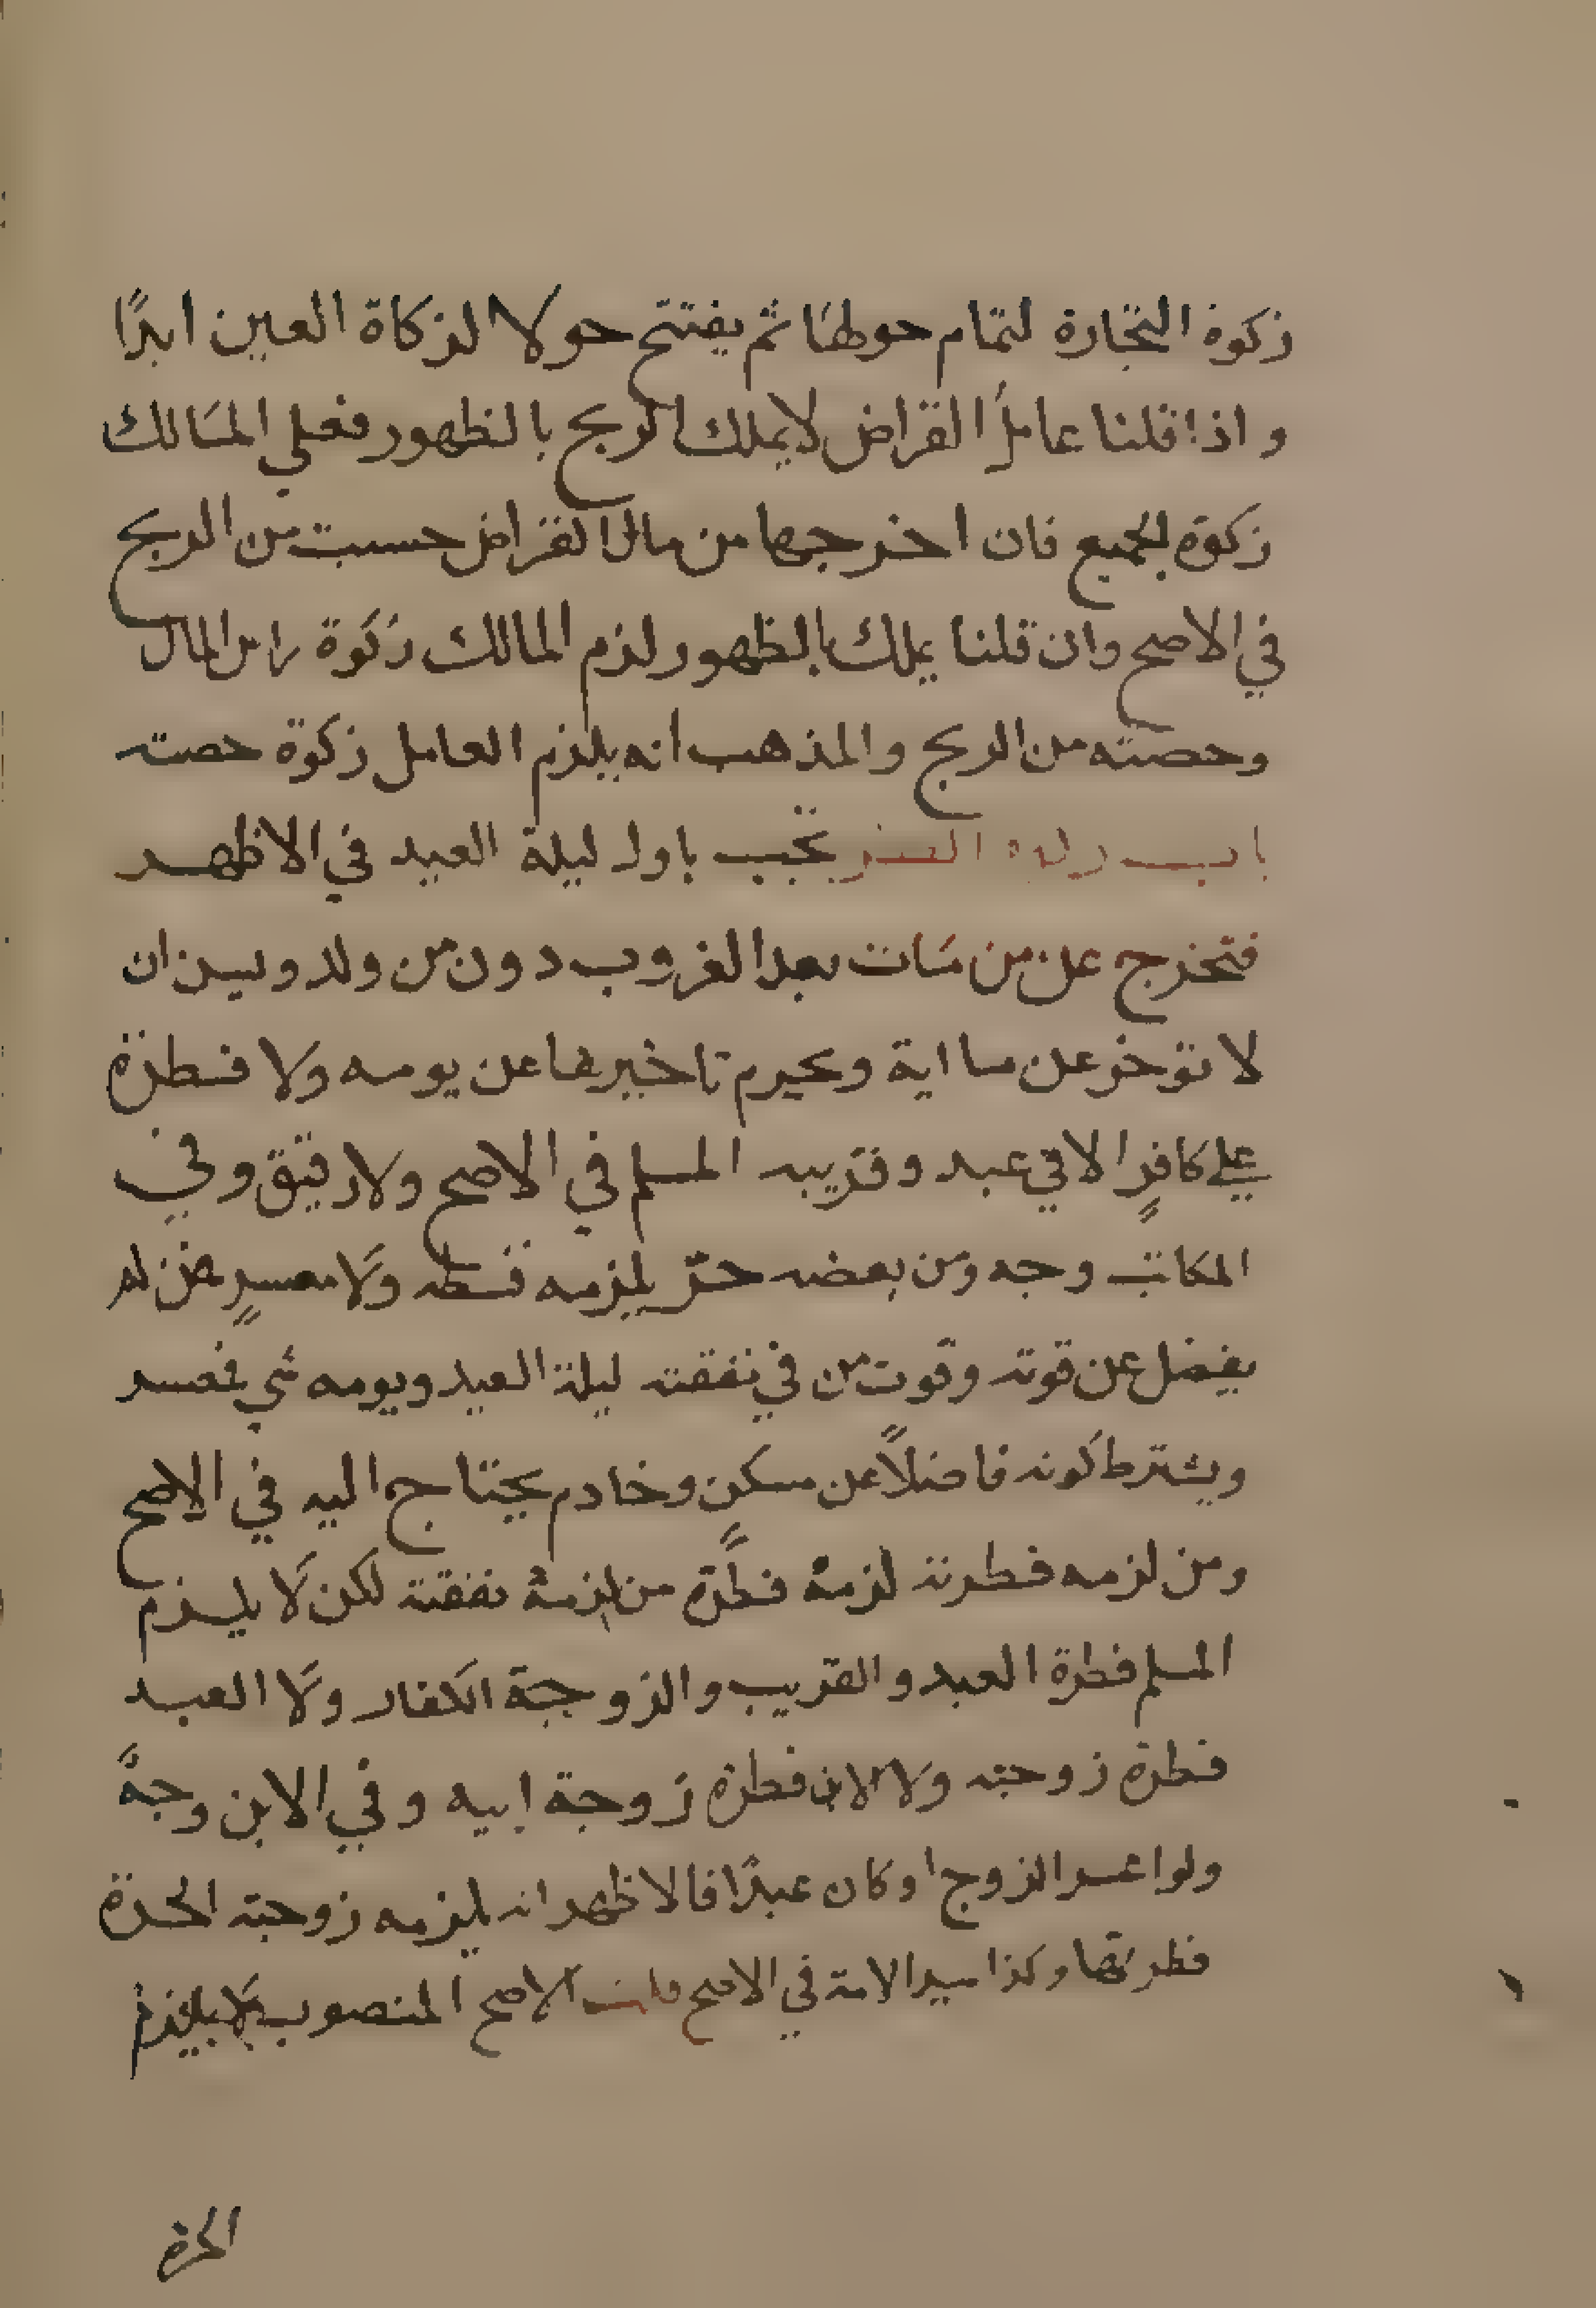 زكوة التجارة لتمام حولها ثم يفتتح حولا لزكاة العين ابدًا
و اذا قلنا عامل القراض لا يملك الربح بالظهور فعلي المالك
زكوة الجميع فان اخرجها من مال القراض حسبت من الربح
في الاصح وان قلنا يملك بالظهور لزم المالك زكوة راس المال
وحصته من الربح والمذهب انه يلزم العامل زكوة حصته
باب زكوة الفطر تجب باول ليلة العيد في الاظهر
فتخرج عن من مات بعد الغروب دون من ولد ويسن ان
لا توخر عن صلاته ويحرم تاخيرها عن يومه ولا فطرة
علي كافرٍ الا في عبده وقريبه المسلم في الاصح ولا رقيق وفي
المكاتب وجه ومن بعضه حرّ يلزمه قسطه ولا معسرٍ فمن لم
يفضل عن قوته وقوت من في نفقته ليلة العيد ويومه شي فمعسر
ويشترط كونه فاضلاً عن مسكن وخادم يحتاج اليه في الاصح
ومن لزمه فطرته لزمه فطرة من لزمه نفقته لكن لا يلزم
المسلم فطرة العبد والقريب والزوجة الكفار ولا العبد
فطرة زوجته ولا الابن فطرة زوجة ابيه وفي الابن وجهٌ
ولو اعسر الزوج او كان عبدًا فالاظهر انه يلزمه زوجته الحرة
فطرتها وكذا سيد الامة في الاصح قلت الاصح المنصوب لا يلزم
الحرة